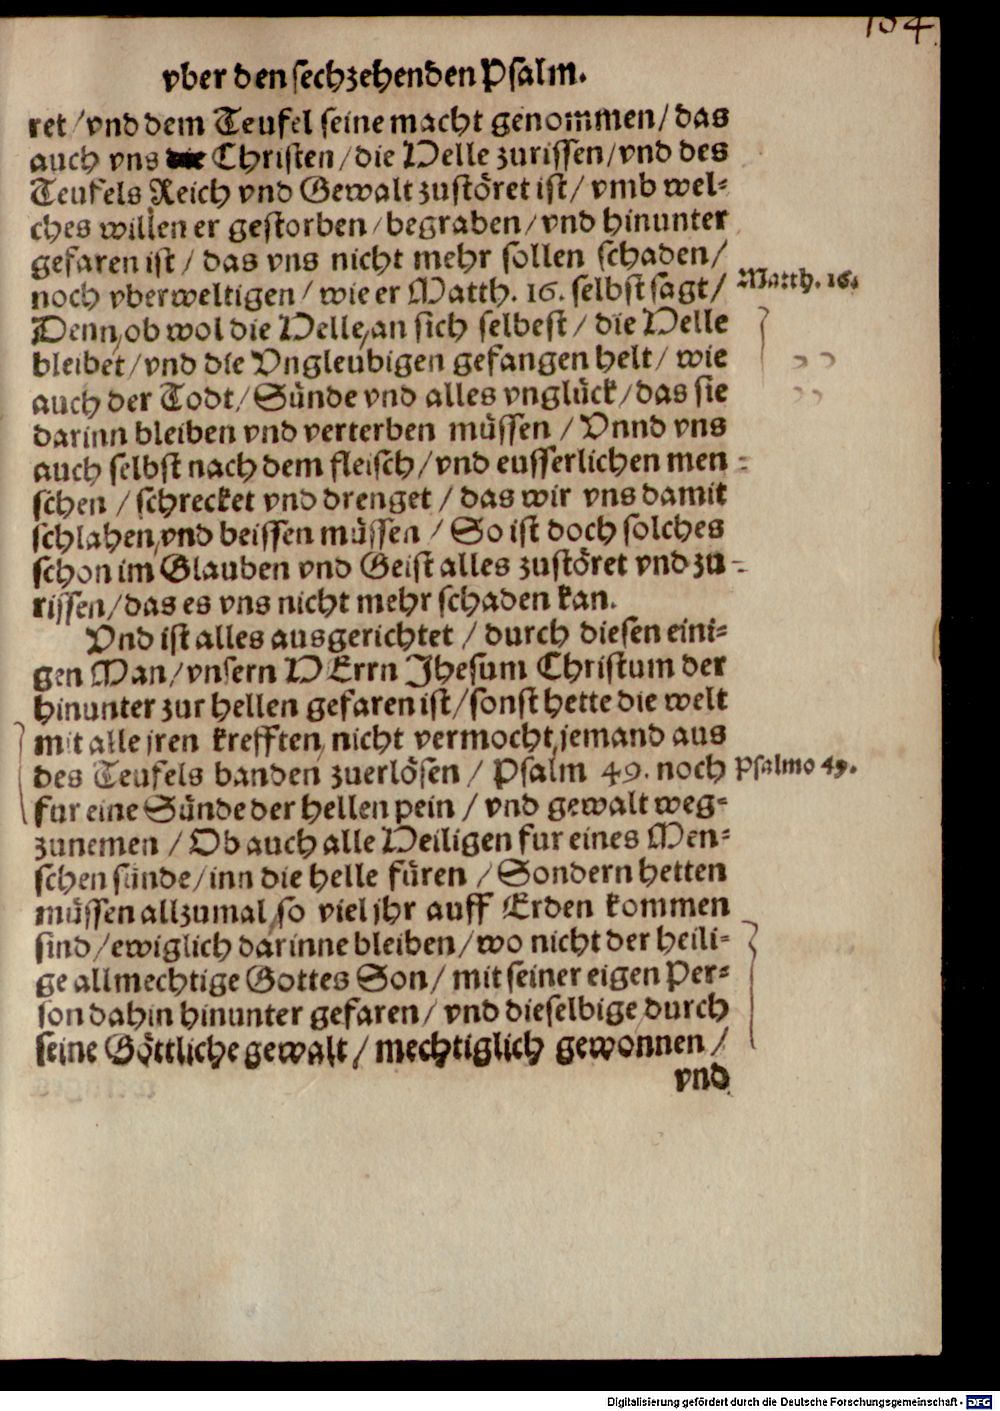 134
vber den sechzehenden Psalm.
ret / vnd dem Teufel seine macht genommen / das
auch vns die Christen / die Helle zurissen / vnd des
Teufels Reich vnd Gewalt zustöret ist / vmb wel-
ches willen er gestorben / begraben / vnd hinunter
gefaren ist / das vns nicht mehr sollen schaden /
noch vberweltigen / wie er Matth. 16. selbst sagt /
Matth. 16.
Denn, ob wol die Helle, an sich selbest / die Helle
bleibet / vnd die Vngleubigen gefangen helt / wie
auch der Todt / Sünde vnd alles vnglück / das sie
darinn bleiben vnd verterben müssen / Vnnd vns
auch selbst nach dem fleisch / vnd eusserlichen men-
schen / schrecket vnd drenget / das wir vns damit
schlahen, vnd beissen müssen / So ist doch solches
schon im Glauben vnd Geist alles zustöret vnd zu-
rissen / das es vns nicht mehr schaden kan.
Vnd ist alles ausgerichtet / durch diesen eini-
gen Man / vnsern HErrn Jhesum Christum der
hinunter zur hellen gefaren ist / sonst hette die welt
mit alle jren krefften, nicht vermocht, jemand aus
des Teufels banden zuerlösen / Psalm 49. noch
Psalmo 49.
fur eine Sünde der hellen pein / vnd gewalt weg-
zunemen / Ob auch alle Heiligen fur eines Men-
schen sünde / inn die helle füren / Sondern hetten
müssen allzumal, so viel jhr auff Erden kommen
sind / ewiglich darinne bleiben / wo nicht der heili-
ge allmechtige Gottes Son / mit seiner eigen Per-
son dahin hinunter gefaren / vnd dieselbige durch
seine Göttliche gewalt / mechtiglich gewonnen /
vnd
Digitalisierung gefördert durch die Deutsche Forschungsgemeinschaft - DFG